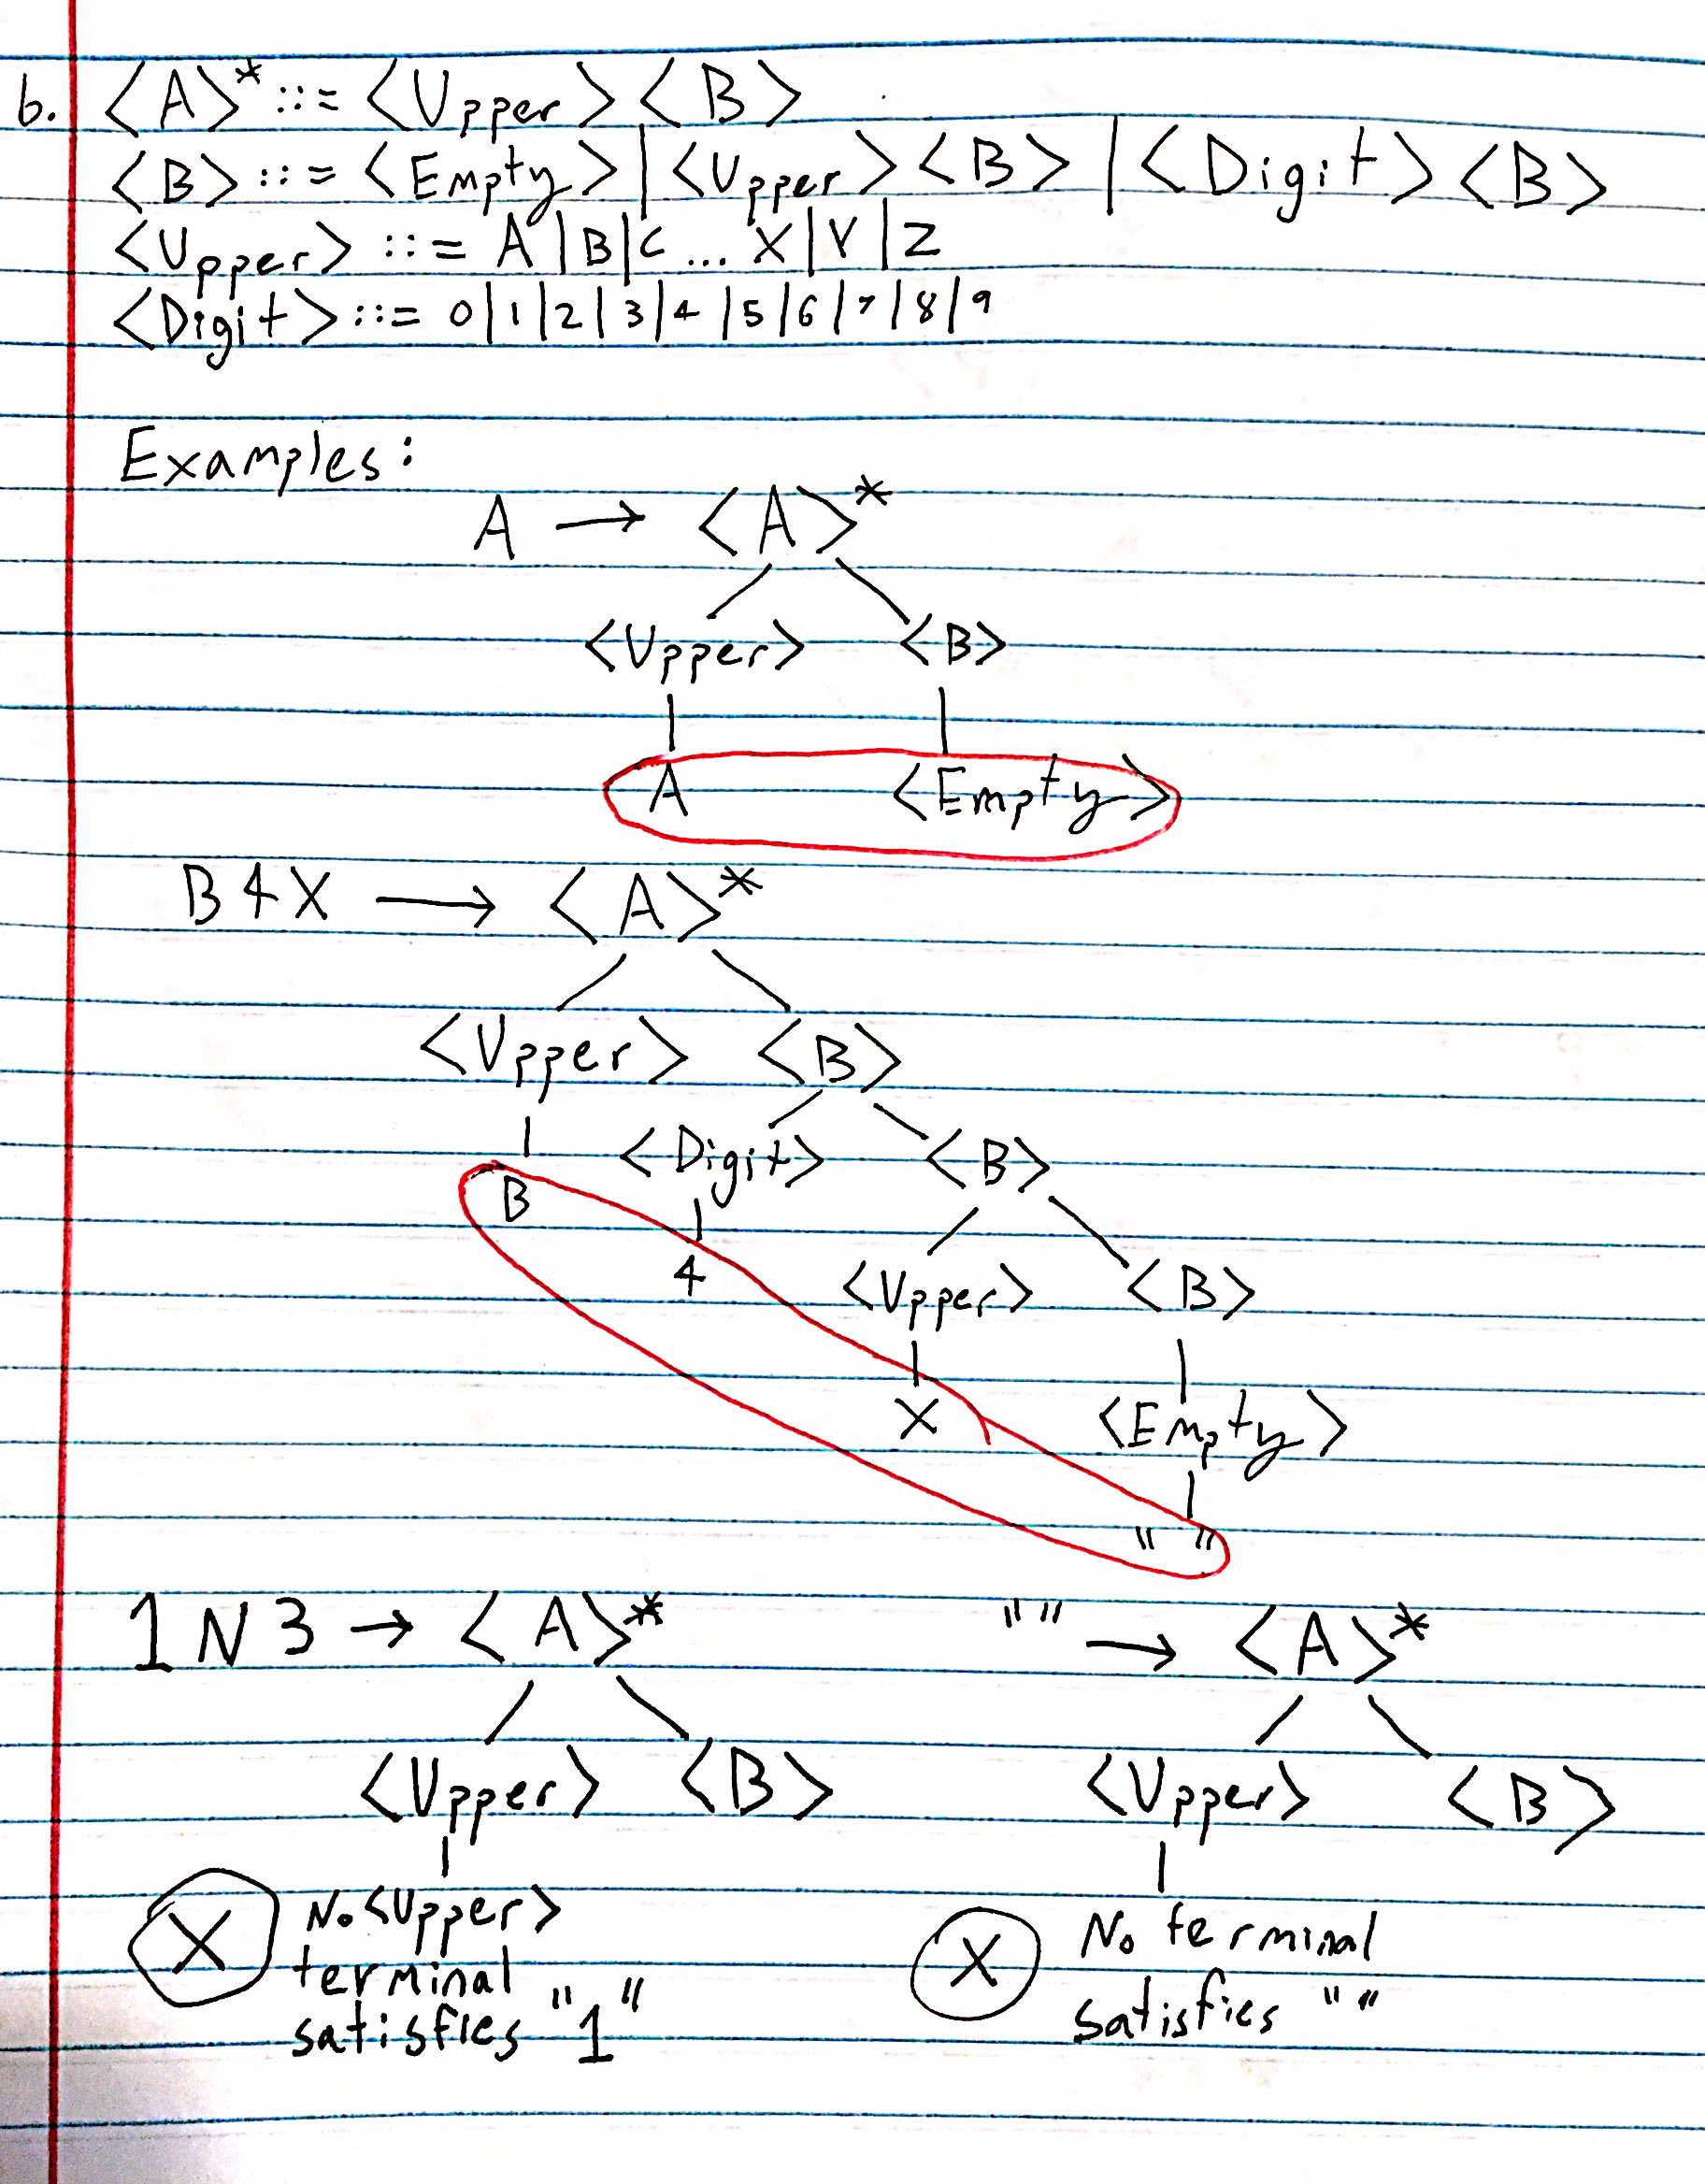 b. <A>* ::= <Upper> <B>
<B> ::= <Empty> | <Upper> <B> | <Digit> <B>
<Upper> ::= A | B | C ... X | Y | Z
<Digit> ::= 0 | 1 | 2 | 3 | 4 | 5 | 6 | 7 | 8 | 9
Examples:
A → <A>*
<Upper> <B>
A <Empty>
B4X → <A>*
<Upper> <B>
<Digit> <B>
B
4 <Upper> <B>
X <Empty>
" "
1N3 → <A>*
<Upper> <B>
X No <Upper>
terminal
satisfies "1"
"" → <A>*
<Upper> <B>
X No terminal
satisfies ""